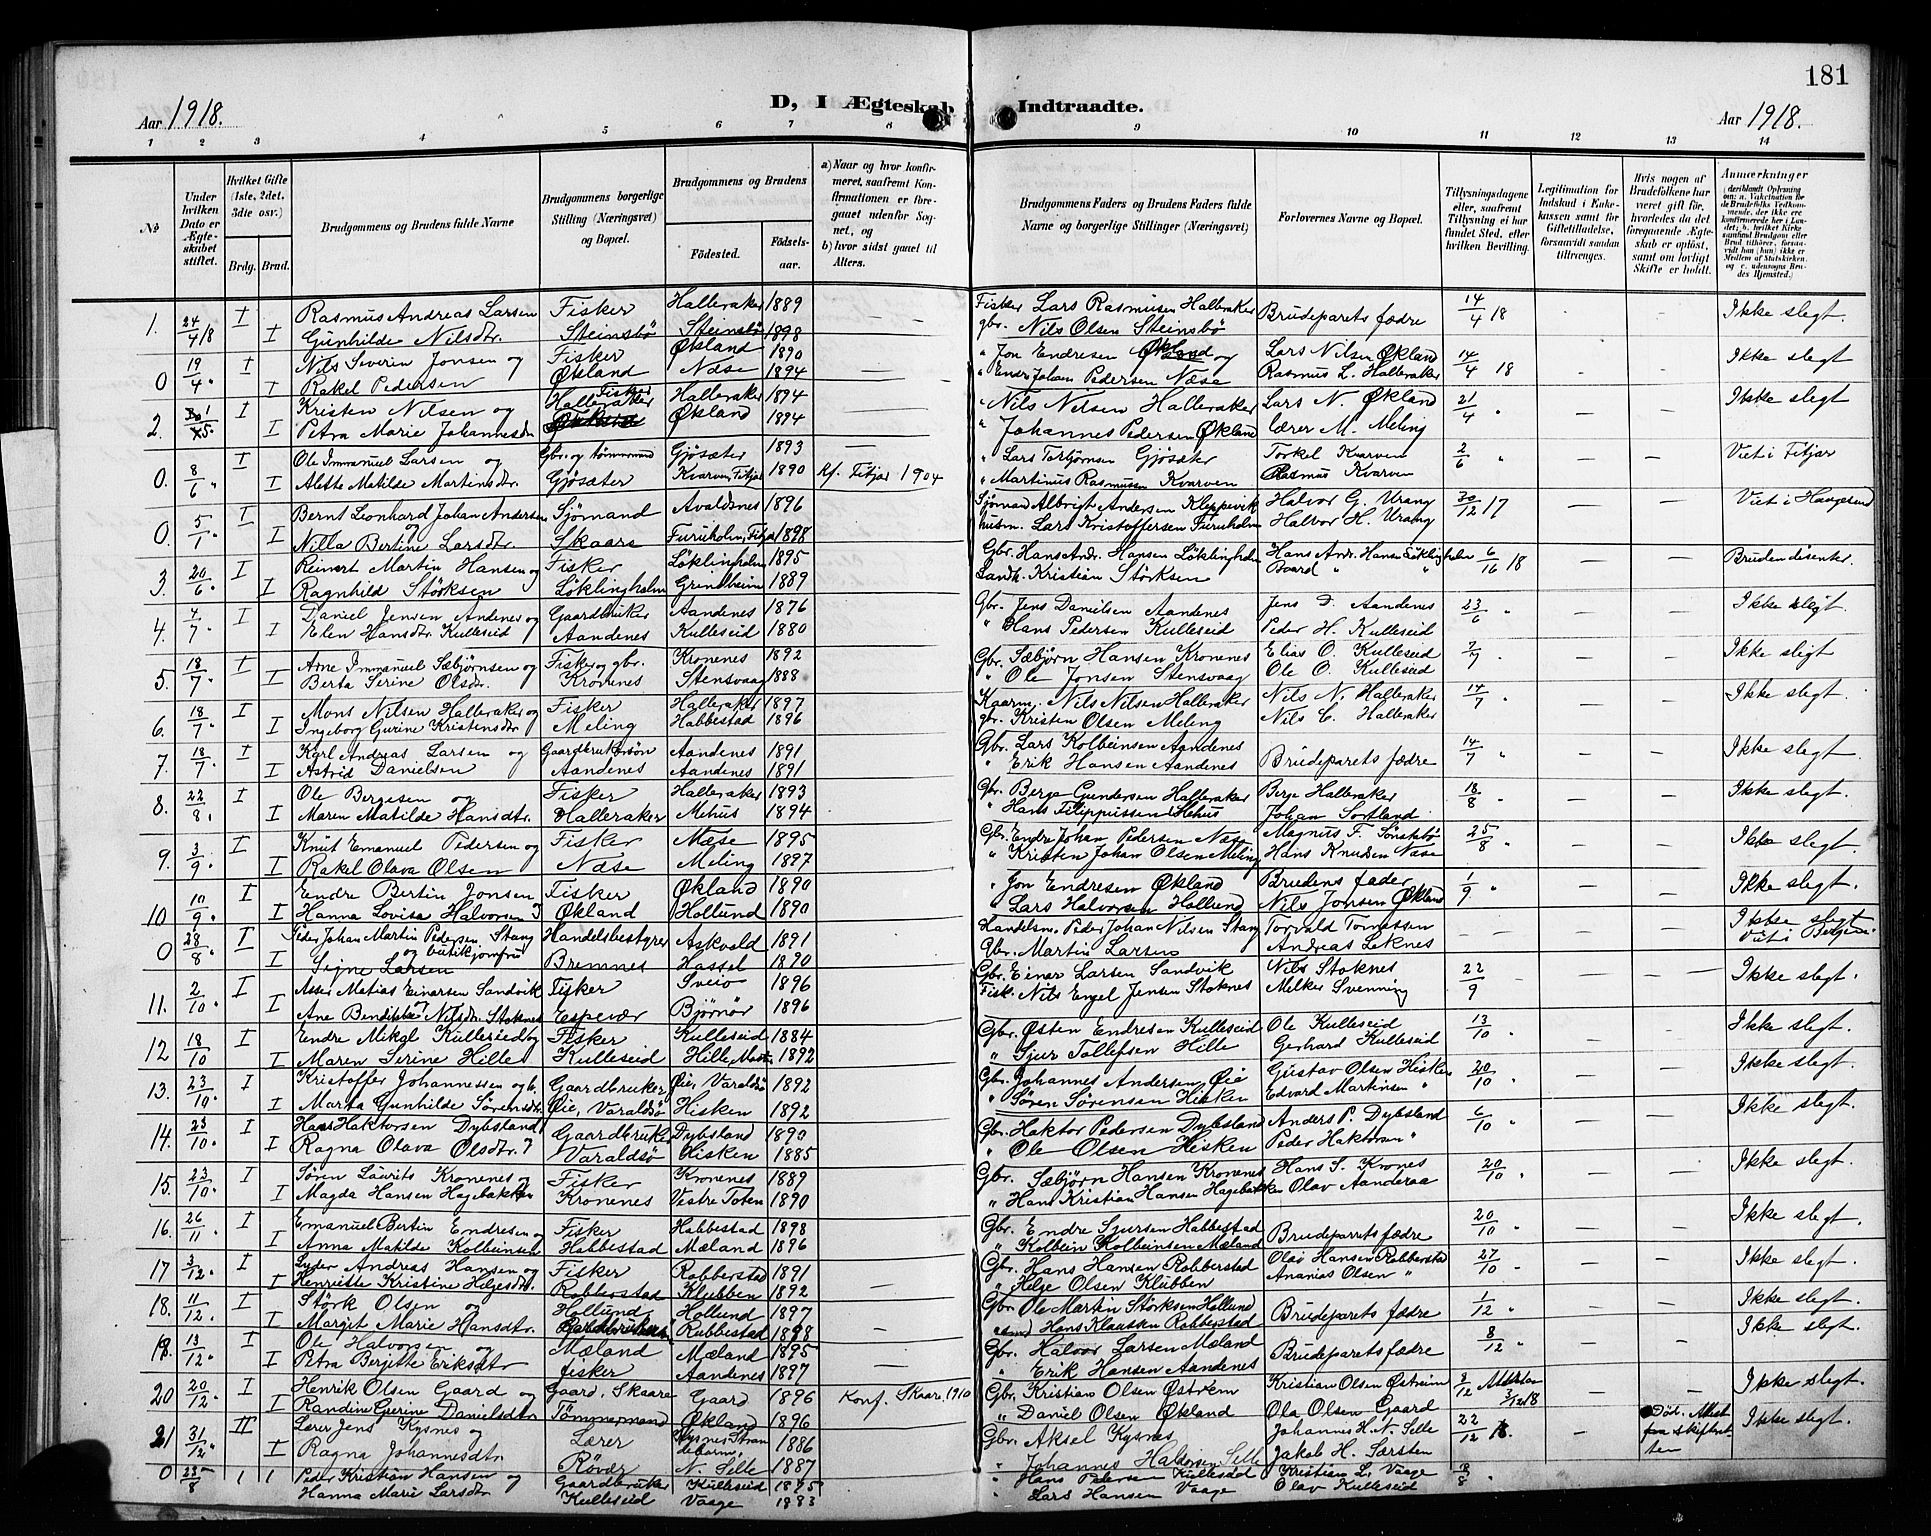 181
Aar 1918.
D, I Ægteskab Indtraadte.
Aar 1918.
1 2 3 4 5 6 7 8 9 10 11 12 13 14
No
Under hvilken Dato er Ægteskabet stiftet.
Hvilket Gifte (1ste, 2det, 3dte osv.)
Brdg. Brud.
Brudgommens og Brudens fulde Navne
Brudgommens borgerlige Stilling (Næringsvei) og Bopæl.
Brudgommens og Brudens
Födested. Födselsaar.
a) Naar og hvor konfirmeret, saafremt Konfirmationen er foregaaet udenfor Sognet, og
b) hvor sidst gaaet til Alters.
Brudgommens Faders og Brudens Faders fulde Navne og borgerlige Stillinger (Næringsvei)
Forlovernes Navne og Bopæl.
Tillysningsdagene eller, saafremt Tillysning ei har fundet Sted, efter hvilken Bevilling.
Legitimation for Indskud i Enkekassen samt for Giftetilladelse, forsaavidt saadan tiltrænges.
Hvis nogen af Brudefolkene har været gift før, hvorledes da det foregaaende Ægteskab er oplöst, samt om lovligt Skifte er holdt.
Anmærkninger
1. 24/4 18 I Rasmus Andreas Larsen Fisker Halleraker 1889 Fisker Lars Rasmussen Halleraker Brudeparets fædre 14/4 18 Ikke slegt.
I Gunhilde Nilsdtr. Steinsbö Steinsbö 1898 gbr. Nils Olsen Steinsbö
0 19/4 I Nils Severin Jonsen og Fisker Økland 1890 " Jon Endresen Økland og Lars Nilsen Økland 14/4 18 Ikke slegt
I Rakel Pedersen Økland Næse 1894 " Endr. Johan Pedersen Næse Rasmus L. Halleraker
2. 1/5 I Kristen Nilsen og Fisker Halleraker Halleraker 1894 " Nils Nilsen Halleraker Lars N. Økland 21/4 " Ikke slegt
I Petra Marie Johannesdtr Økland 1894 " Johannes Pedersen Økland lærer M. Meling
0. 8/6 " I Ole Immanuel Larsen og Gbr. og tømmermand Gjøsæter 1893 " Lars Torbjørnsen Gjøsæter Torkel Kvarven 2/6 " Viet i Fitjar
I Alette Matilde Martensdtr. Gjøsæter Kvarven, Fitjar 1890 Kf. Fitjar 1904 " Martinus Rasmussen Kvarven Rasmus Kvarven
0. 5/1 I Bernt Leonhard Johan Andersen og Sjømand Avaldsnes 1896 Sjømand Albrigt Andersen Kleppevik Halvor G. Urang 30/12 17 Viet i Haugesund
I Nilla Bertine Larsdtr. Skaare Furuholm, Fitjar 1898 husm. Lars Kristoffersen Furuholm Halvor H. Urang
3. 20/6 I Reinert Martin Hansen og Fisker Løklingholm 1895 Gbr. Hans Andr. Hansen Løklingholm Hans Andr. Hansen Løklingholm 6/16 18 Bruden disenter.
I Ragnhild Størksen Løklingholm Grindheim 1889 Landh. Kristian Størksen Baard " "
4. 4/7 I Daniel Jensen Andenes og Gaardbruker Aandenes 1876 Gbr. Jens Danielsen Aandenes Jens D. Aandenes 23/6 " Ikke slegt.
I Elen Hansdtr. Kulleseid Aandenes Kulleseid 1880 " Hans Pedersen Kulleseid Peder H. Kulleseid
5. 18/7 I Arne Immanuel Sæbjørnsen og Fisker og gbr. Kronenes 1892 Gbr. Sæbjørn Hansen Kronenes Elias O. Kulleseid 7/7 Ikke slegt
I Berta Serine Olsdtr. Kronenes Stensvaag 1888 " Ole Jonsen Stensvaag Ole O. Kulleseid
6. 18/7 I Mons Nilsen Halleraker og Fisker Halleraker 1897 Kaarm. Nils Nilsen Halleraker Nils N. Halleraker 14/7 " Ikke slegt.
I Ingeborg Gurine Kristensdtr. Meling Habbestad 1896 gbr. Kristen Olsen Meling Nils C. Halleraker
7. 18/7 I Karl Andreas Larsen og Gaardbrukersøn Aandenes 1891 Gbr. Lars Kolbeinsen Aandenes Brudeparets fædre 14/7 " Ikke slegt
I Astrid Danielsen Aandenes Aandenes 1891 " Erik Hansen Aandenes
8. 22/8 I Ole Bergesen og Fisker Halleraker 1893 Gbr. Berge Gundersen Halleraker Berge Halleraker 18/8 " Ikke slegt.
I Maren Matilde Hansdtr. Halleraker Mehus 1894 " Hans Filippussen Mehus Johan Sortland
9. 3/9 I Knut Emanuel Pedersen og Fisker Næse 1895 Gbr. Endre Johan Pedersen Næse Magnus F. Sønstebø 25/8 " Ikke slegt.
I Rakel Olava Olsen Næse Meling 1897 " Kristen Johan Olsen Meling Hans Knudsen Næse
10 10/9 I Endre Bertin Jonsen Fisker Økland 1890 " Jon Endresen Økland Brudens fader 1/9 " Ikke slegt.
I Hanna Lovise Halvorsen Økland Hollund 1890 " Lars Halvorsen Hollund Nils Jonsen Økland
0 28/8 I Peder Johan Martin Pedersen Stang Handelsbestyrer Askvold 1891 Handelsm. Peder Johan Nilsen Stang Torvald Tomassen Ikke slegt
I og butikjomfru Signe Larsen Bremnes Hassel 1890 Gbr. Martin Larsen Andreas Leknes Viet i Bergen
11. 2/10 I Asser Matias Einarsen Sandvik og Fisker Sveio 1896 Gbr. Einar Larsen Sandvik Nils Stoknes 22/9 Ikke slegt.
I Ane Bendikke Nilsdtr. Stoknes Espevær Bjørnør 1896 Fisk. Nils Engel Jensen Stoknes Melker Svenning
12 18/10 I Endre Mikal Kulleseid og Fisker Kulleseid 1884 Gbr. Østen Endresen Kulleseid Ole Kulleseid 13/10 " Ikke slegt.
I Maren Serine Hille Kulleseid Hille, 1892 " Sjur Tollefsen Hille Gerhard Kulleseid
13. 23/10 I Kristoffer Johannessen og Gaardbruker Øie, Varaldsø 1892 Gbr. Johannes Andersen Øie Gustav Olsen Hisken 20/10 " Ikke slegt.
I Marta Gunhilde Sørensdtr. Øie, Varaldsø Hisken 1892 " Søren Sørensen Hisken Edvard Martinsen "
14. 23/10 I Haktorsen Dybsland Gaardbruker Dybsland 1890 Gbr. Haktor Pedersen Dybsland Anders P. Dybsland 6/10 " Ikke slegt.
I Ragna Olava Olsdtr. Varaldsö Hisken 1885 " Ole Olsen Hisken Peder Haktorsen "
15. 23/10 I Søren Laurits Kronenes og Fisker Kronenes 1889 Gbr. Sæbjørn Hansen Kronenes Hans S. Krones 20/10 " Ikke slegt.
I Magda Hansen Hagebakken Kronenes Vestre Toten 1890 " Hans Kristian Hansen Hagebakken Olav Aanderaa
16. 26/11 I Emanuel Bertin Endresen og Fisker Habbestad 1898 Gbr. Endre Sjursen Habbestad Brudeparets fædre 20/10 " Ikke slegt.
I Anna Matilde Kolbeinsen Habbestad Mæland 1896 " Kolbein Kolbeinsen Mæland
17 3/12 I Lyder Andreas Hansen og Fisker Robberstad 1891 Gbr. Hans Hansen Robberstad Olai Hansen Robberstad 27/10 Ikke slegt.
I Henriette Kristine Helgesdtr. Robberstad Klubben 1892 " Helge Olsen Klubben Ananias Olsen "
18. 11/12 I Størk Olsen og Hollund Hollund 1897 Gbr Ole Martin Størksen Hollund Brudeparets fædre 1/12 " Ikke slegt.
I Margit Marie Hansdtr. Gaardbruker Rubbestad 1898 Hans Klausen Robberstad
19. 13/12 I Ole Halvorsen og Mæland Mæland 1895 Gbr. Halvor Larsen Mæland Brudeparets fædre 8/12 " Ikke slegt.
I Petra Berjitte Eriksdtr fisker Aandenes 1897 " Erik Hansen Aandenes
20 20/12 I Henrik Olsen Gaard og Gaard, Skaare Gaard 1896 Konf. Skaare, 1910 Gbr. Kristian Olsen Østrem Kristian Olsen Østrem 8/12 3/12 18 Ikke slegt.
I Randine Gurine Danielsdtr Tømmermand Økland 1896 " Daniel Olsen Økland Ola Olsen Gaard
21 31/12 II Lærer Jens Kysnes og Lærer Kysnes, Strandebarm, 1886 Gbr. Aksel Kysnes Johannes H. N. Selle 22/12 18. Død. Attest fra skifteretten Ikke slegt.
I Ragna Johannesdtr. Røvær N. Selle 1887 " Johannes Haldorsen Selle Jakob H. Særsten
0 25/8 1 1 Peder Kristian Hansen og Gaardbruker Kulleseid 1875 " Hans Pedersen Kulleseid Kristian L. Vaage 8/8
Hanna Marie Larsdtr Kulleseid Vaage 1883 " Lars Hansen Vaage Olav Kulleseid